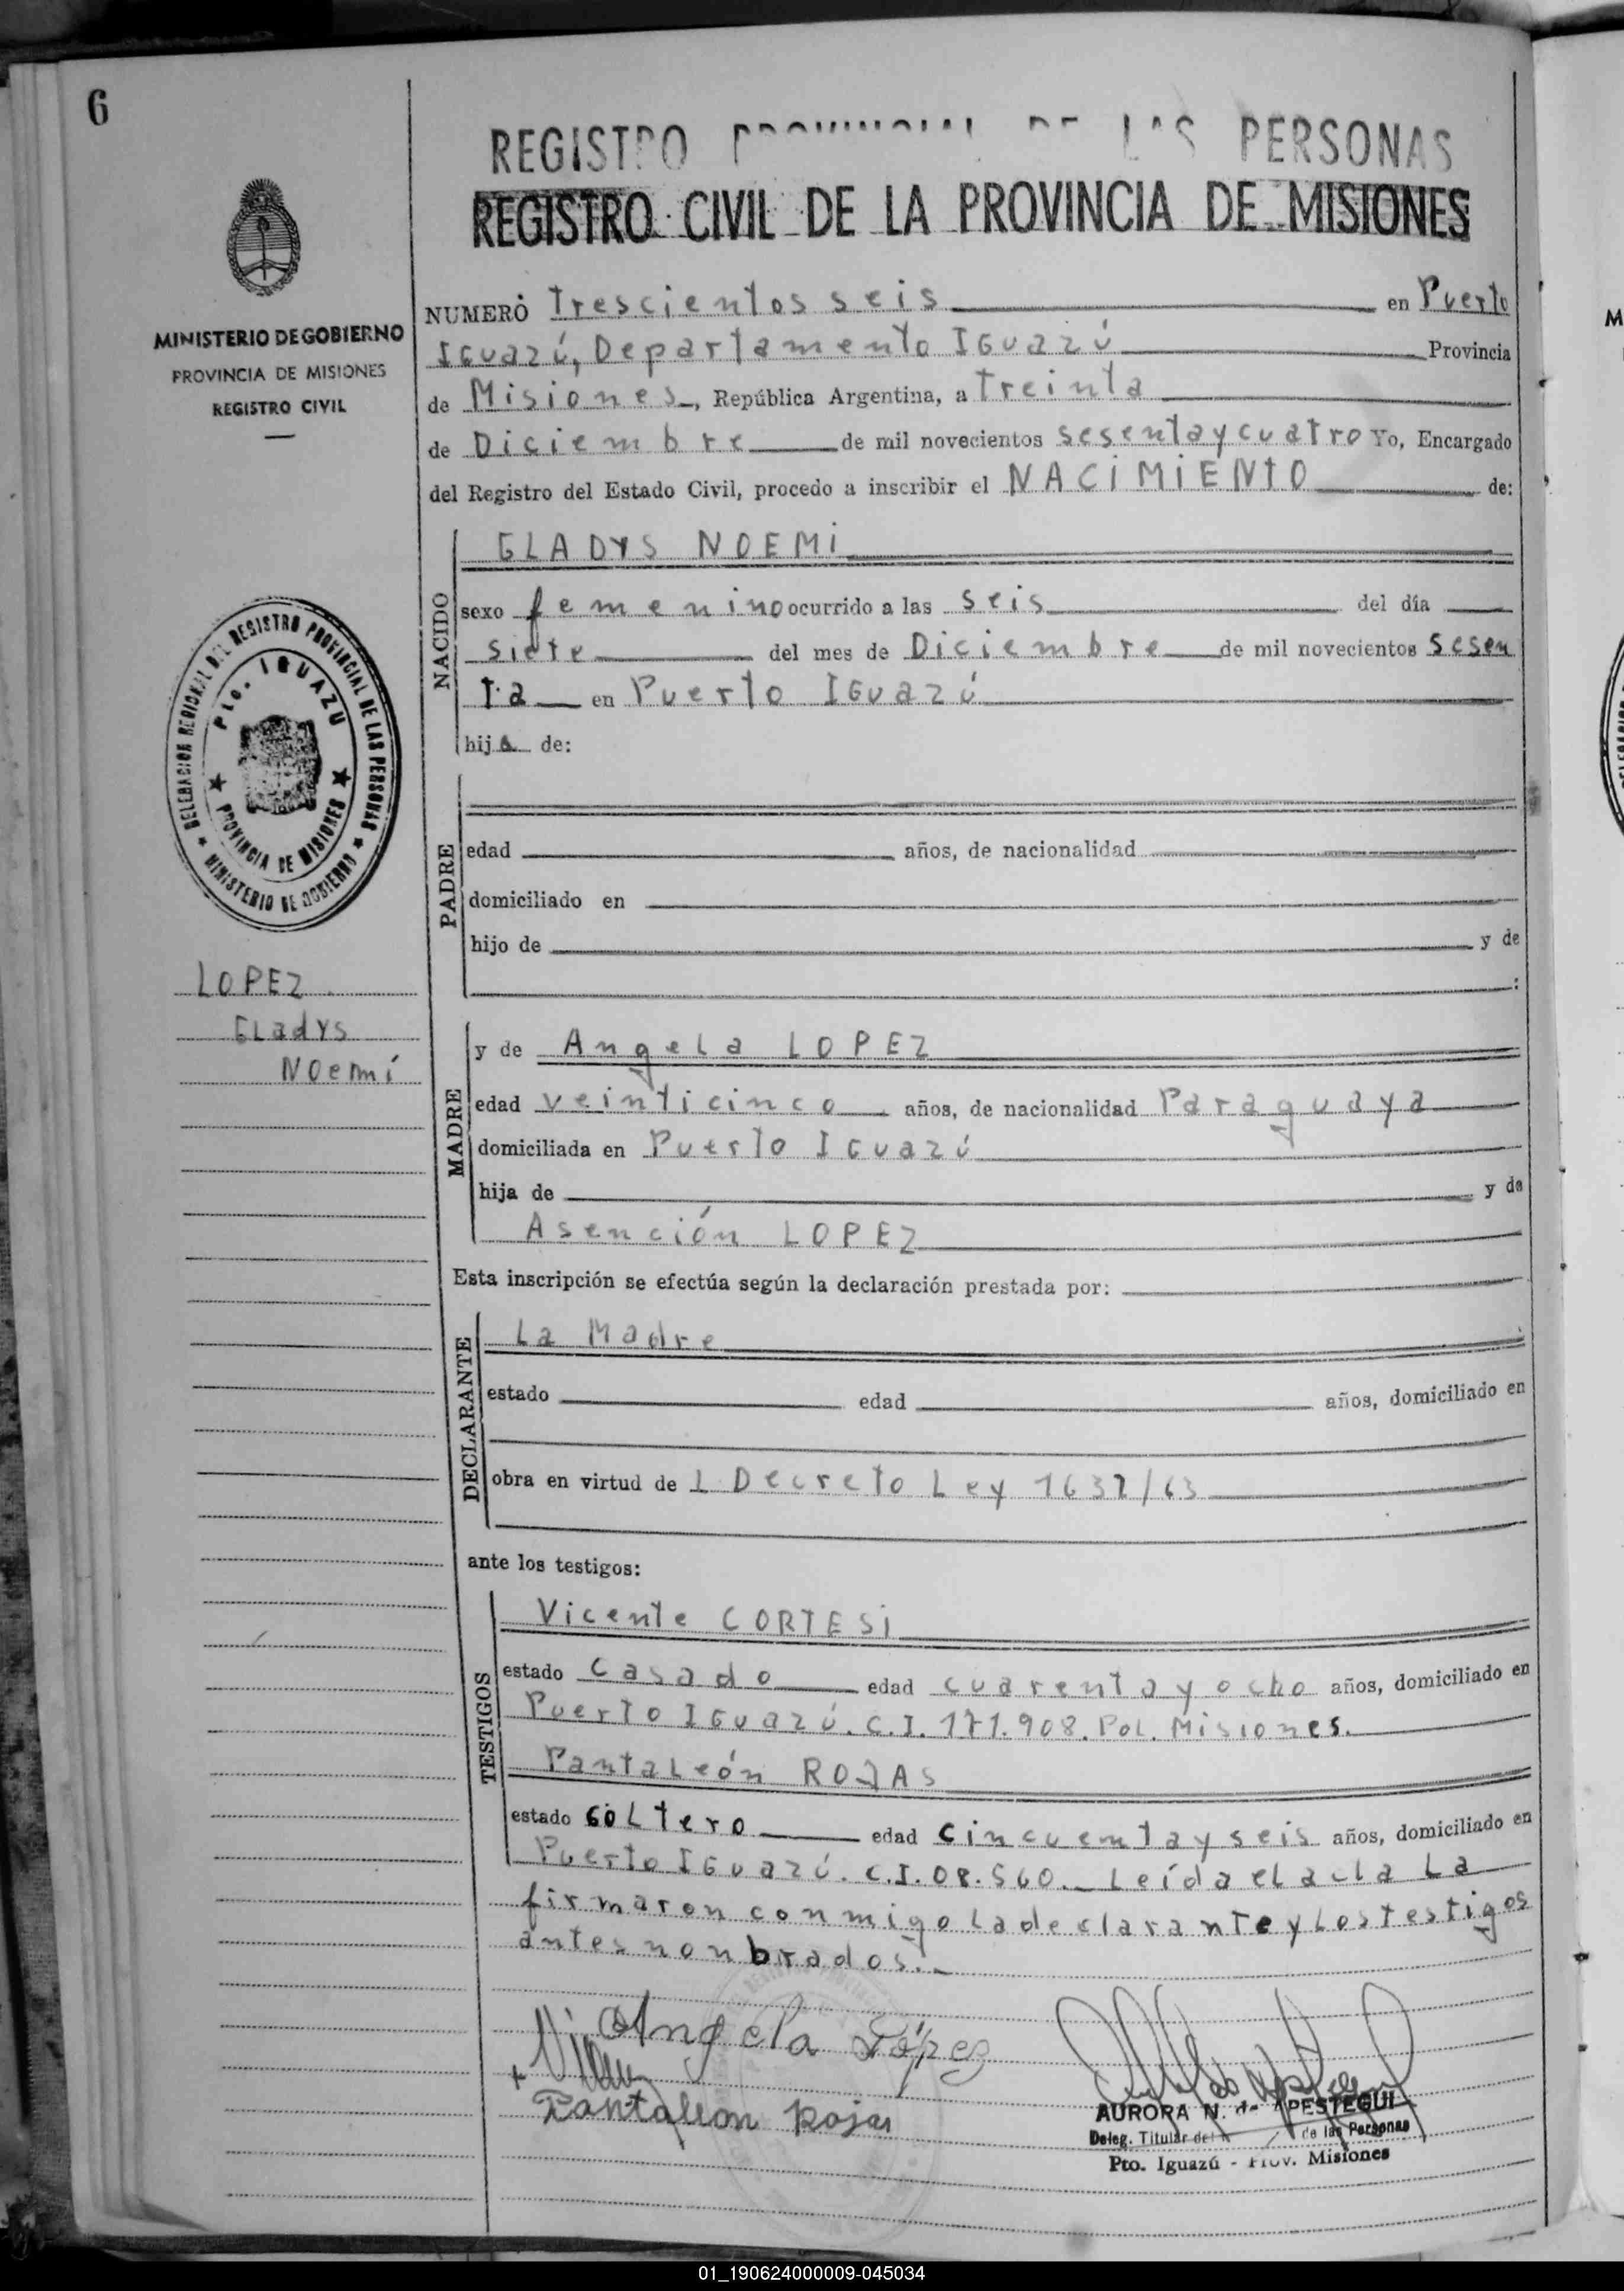 6
REGISTRO PROVINCIAL DE LAS PERSONAS
REGISTRO CIVIL DE LA PROVINCIA DE MISIONES
MINISTERIO DE GOBIERNO
PROVINCIA DE MISIONES
REGISTRO CIVIL
NUMERO Trescientos seis en Puerto
Iguazú, Departamento Iguazú Provincia
de Misiones, República Argentina, a treinta
de Diciembre de mil novecientos sesenta y cuatro Yo, Encargado
del Registro del Estado Civil, procedo a inscribir el NACIMIENTO de:
NACIDO
GLADYS NOEMI
sexo femenino ocurrido a las seis del día
siete del mes de Diciembre de mil novecientos sesen
ta en Puerto Iguazú
hija de:
DELEGACION REGIONAL DEL REGISTRO PROVINCIAL DE LAS PERSONAS
Pto. IGUAZU
PROVINCIA DE MISIONES
MINISTERIO DE GOBIERNO
LOPEZ
Gladys
Noemí
PADRE
edad años, de nacionalidad
domiciliado en
hijo de y de
:
MADRE
y de Angela LOPEZ
edad veinticinco años, de nacionalidad Paraguaya
domiciliada en Puerto Iguazú
hija de y de
Asención LOPEZ
Esta inscripción se efectúa según la declaración prestada por:
DECLARANTE
La Madre
estado edad años, domiciliado en
obra en virtud de l Decreto Ley 1637/63
ante los testigos:
TESTIGOS
Vicente CORTESI
estado casado edad cuarenta y ocho años, domiciliado en
Puerto Iguazú. C.I. 171.908. Pol. Misiones.
Pantaleón ROJAS
estado soltero edad cincuenta y seis años, domiciliado en
Puerto Iguazú. C.I. 08.560._ Leída el acta la
firmaron conmigo la declarante y los testigos
antes nonbrados._
Angela López
Pantaleon Rojas
AURORA N. de APESTEGUI
Deleg. Titular del de las Personas
Pto. Iguazú - Prov. Misiones
01_190624000009-045034